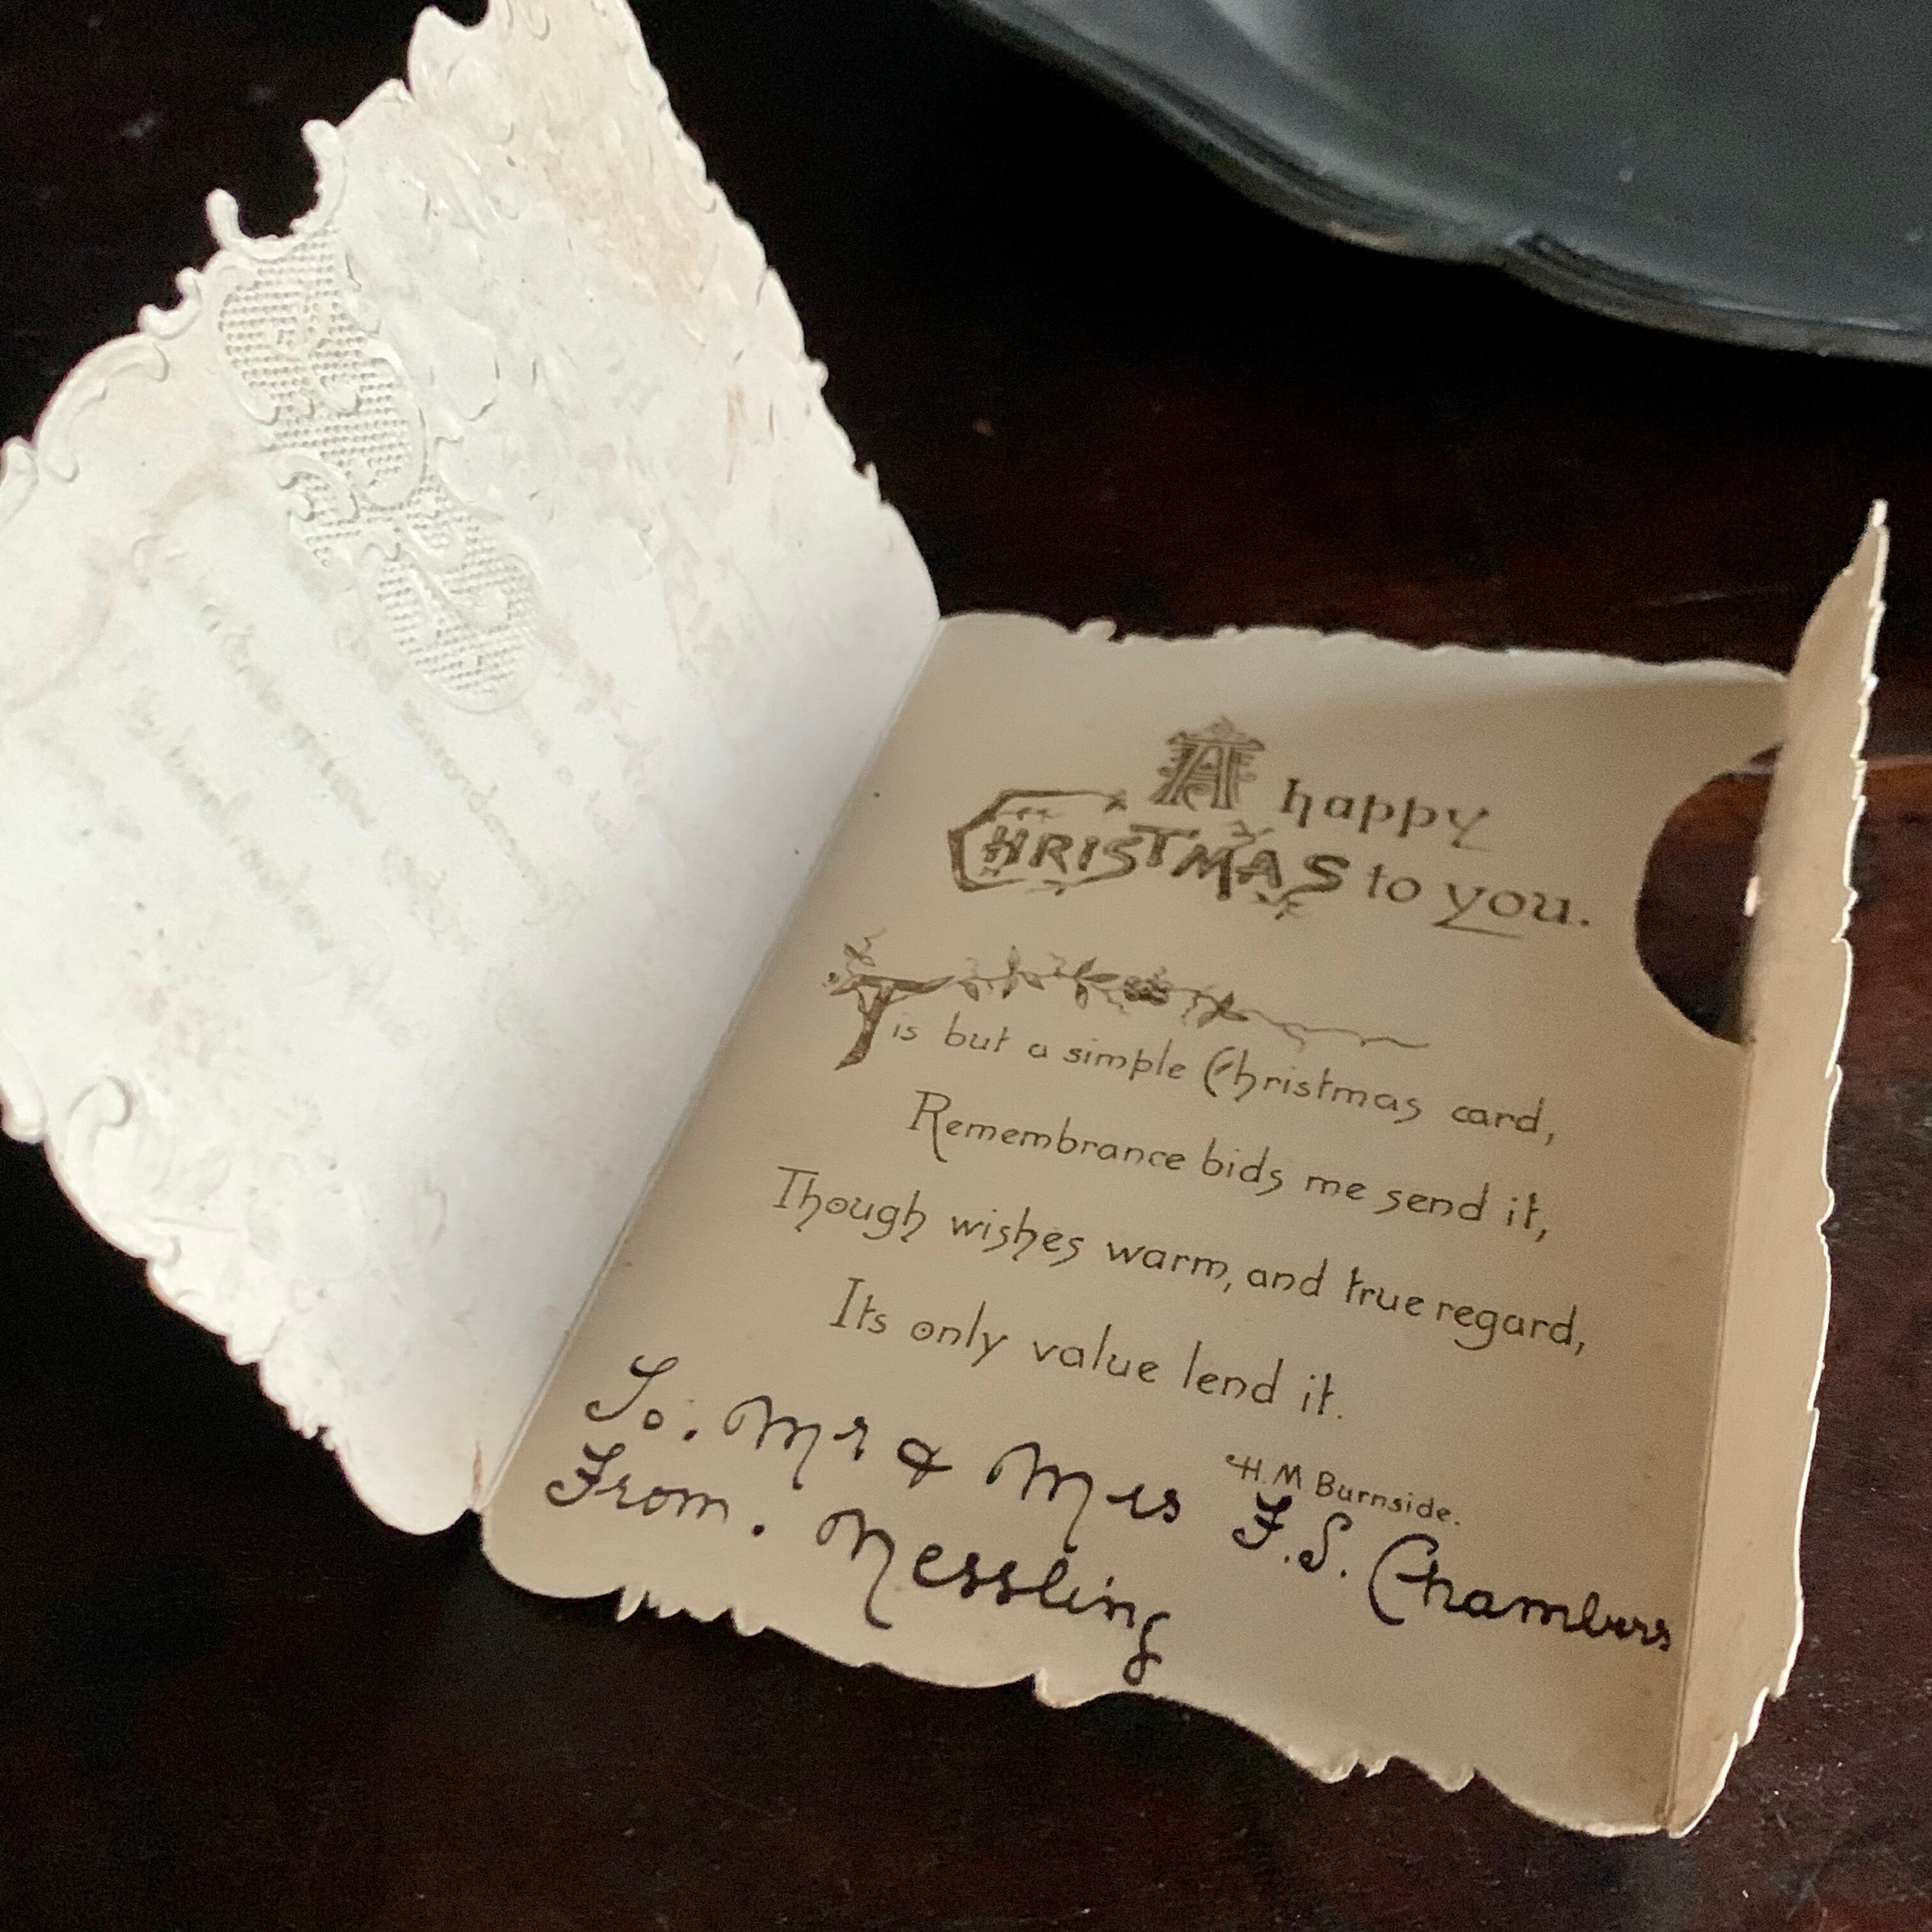 A happy
CHRISTMAS to you.
Tis but a simple Christmas card,
Remembrance bids me send it,
Though wishes warm, and true regard,
Its only value lend it.
H. M Burnside.
To. Mr & Mrs F. S. Chambers
From. Nessling